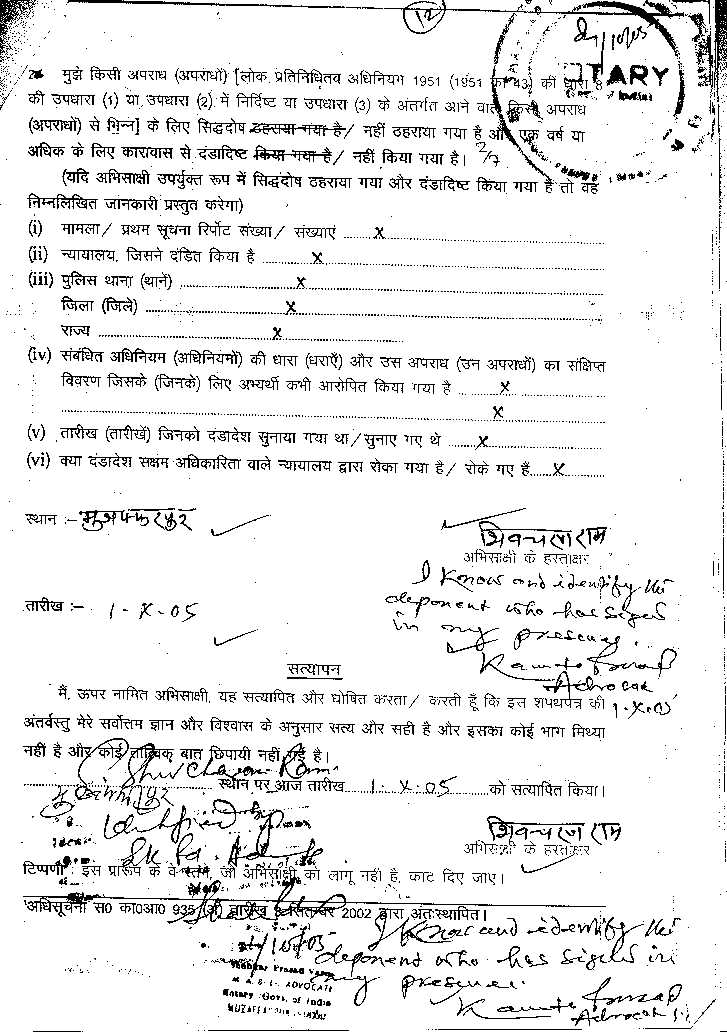 12
NOTARY
2. मुझे किसी अपराध (अपराधों) [लोक प्रतिनिधितव अधिनियम 1951 (1951 का 43) की धारा 8
की उपधारा (1) या उपधारा (2) में निर्दिष्ट या उपधारा (3) के अंतर्गत आने वाले किसी अपराध
(अपराधों) से भिन्न] के लिए सिद्धदोष ठहराया गया है/ नहीं ठहराया गया है और एक वर्ष या
अधिक के लिए कारावास से दंडादिष्ट किया गया है/ नहीं किया गया है।
(यदि अभिसाक्षी उपर्युक्त रूप में सिद्धदोष ठहराया गया और दंडादिष्ट किया गया है तो वह
निम्नलिखित जानकारी प्रस्तुत करेगा)
(i) मामला/ प्रथम सूचना रिर्पोट संख्या/ संख्याएं ........X........
(ii) न्यायालय, जिसने दंडित किया है ........X........
(iii) पुलिस थाना (थानें) ........X........
जिला (जिले) ........X........
राज्य ........X........
(iv) संबंधित अधिनियम (अधिनियमों) की धारा (धराएँ) और उस अपराध (उन अपराधों) का संक्षिप्त
विवरण जिसके (जिनके) लिए अभ्यर्थी कभी आरोपित किया गया है ........X........
........X........
(v) तारीख (तारीखें) जिनको दंडादेश सुनाया गया था/सुनाए गए थे ........X........
(vi) क्या दंडादेश सक्षम अधिकारिता वाले न्यायालय द्वारा रोका गया है/ रोके गए हैं........X........
स्थान :- मुजफ्फरपुर
शिवचरण राम
अभिसाक्षी के हस्ताक्षर
I know and identify the
deponent who has signed
in my presence.
तारीख :- 1-X-05
Advocate
1-X-05
सत्यापन
मैं, ऊपर नामित अभिसाक्षी, यह सत्यापित और घोषित करता/ करती हूँ कि इस शपथपत्र की
अंतर्वस्तु मेरे सर्वोत्तम ज्ञान और विश्वास के अनुसार सत्य और सही है और इसका कोई भाग मिथ्या
नहीं है और कोई तात्विक बात छिपायी नहीं गई है।
Shiv Charan Ram
........ स्थान पर आज तारीख....1-X-05........ को सत्यापित किया।
Identified by
शिवचरण राम
अभिसाक्षी के हस्ताक्षर
टिप्पणी : इस प्रारूप के वे स्तंभ, जो अभिसाक्षी को लागू नहीं है, काट दिए जाए।
अधिसूचना स0 का0आ0 935 (अ) तारीख 3 सितम्बर 2002 द्वारा अंतःस्थापित।
I know and identify the
deponent who has signed in
my presence.
Advocate
ADVOCATE
Notary Govt. of India